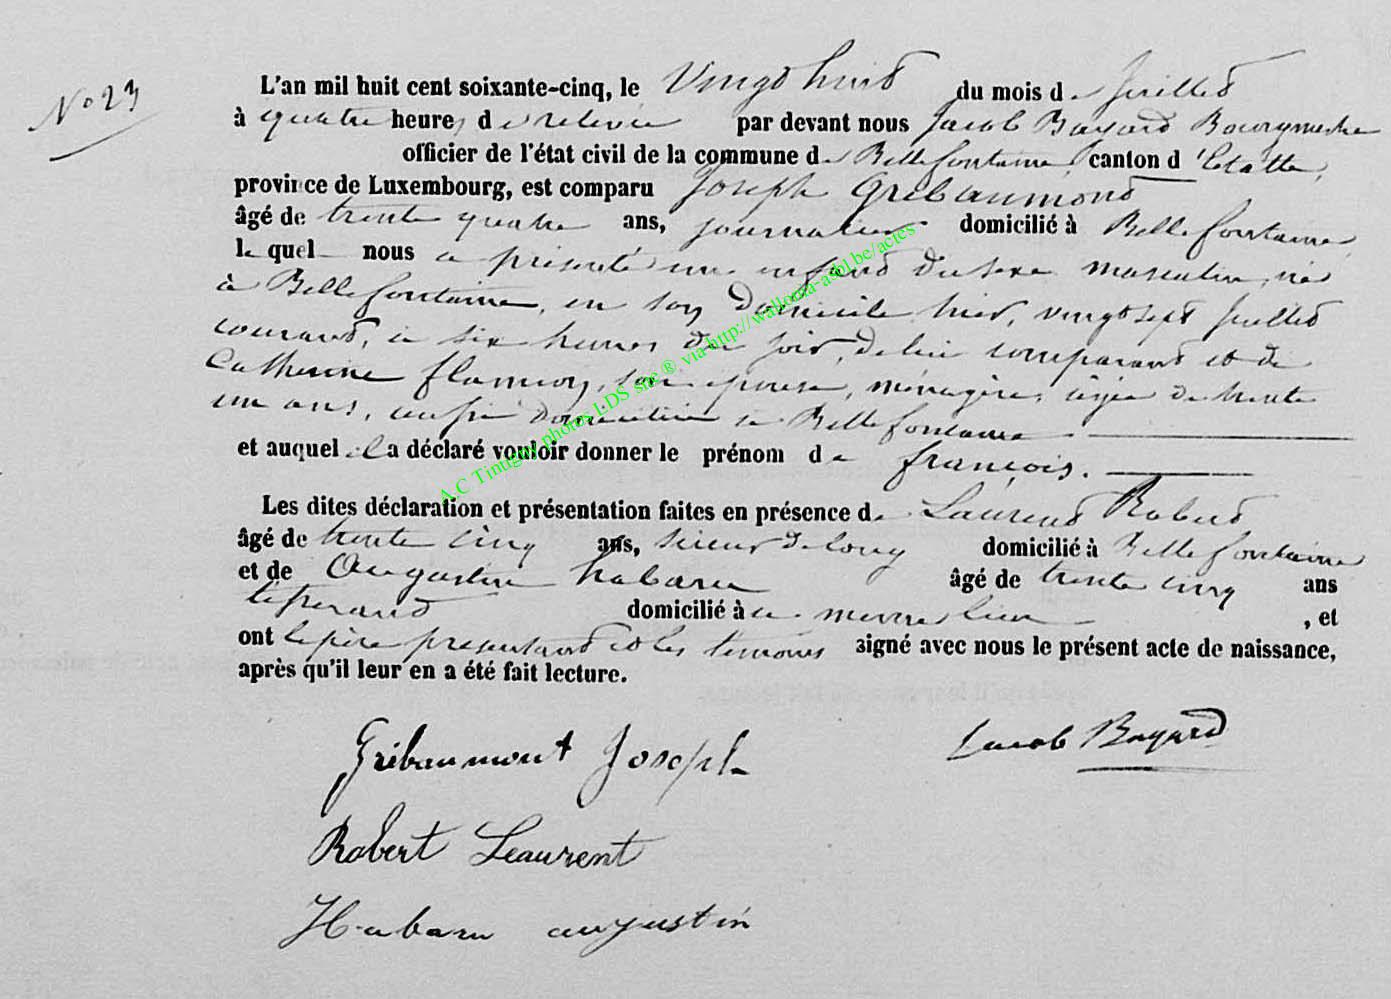 No 23
L'an mil huit cent soixante-cinq, le Vingt huit du mois de Juillet
à quatre heures de relevée par devant nous Jacob Bayard Bourgmestre
officier de l'état civil de la commune de Bellefontaine, canton d'Etalle,
province de Luxembourg, est comparu Joseph Gribaumont
âgé de trente quatre ans, journalier domicilié à Bellefontaine
lequel nous a présenté un enfant du sexe masculin, né
à Bellefontaine, en son Domicile hier, vingt sept Juillet
courant, à six heures du soir, de lui comparant et de
Catherine flamion, son épouse, ménagère, âgée de trente
un ans, aussi domiciliée à Bellefontaine
et auquel il a déclaré vouloir donner le prénom de françois.
Les dites déclaration et présentation faites en présence de Laurent Robert
âgé de trente cinq ans, scieur de long domicilié à Bellefontaine
et de Augustin habaru âgé de trente cinq ans
tisserand domicilié à ce même lieu, et
ont le père présentant et les témoins signé avec nous le présent acte de naissance,
après qu'il leur en a été fait lecture.
Gribaumont Joseph Jacob Bayard
Robert Leaurent
Habaru augustin
A.C Tintigny photos LDS site ® via http://wallonia-asbl.be/actes